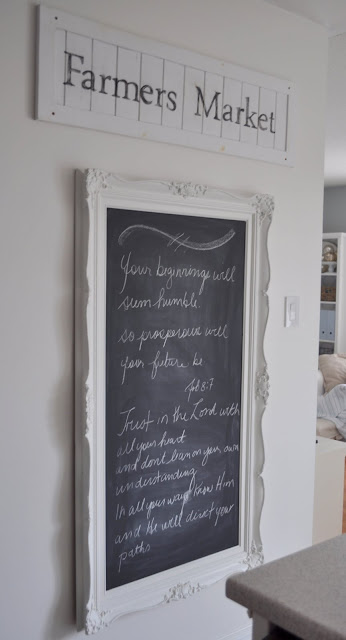 Farmers Market
Your beginnings will
sum humble.
so prosperous will
your future be
Job 8:7
Trust in the Lord with
all your heart
and don't lean on your own
understanding
In all your ways know Him
and He will direct your
paths.